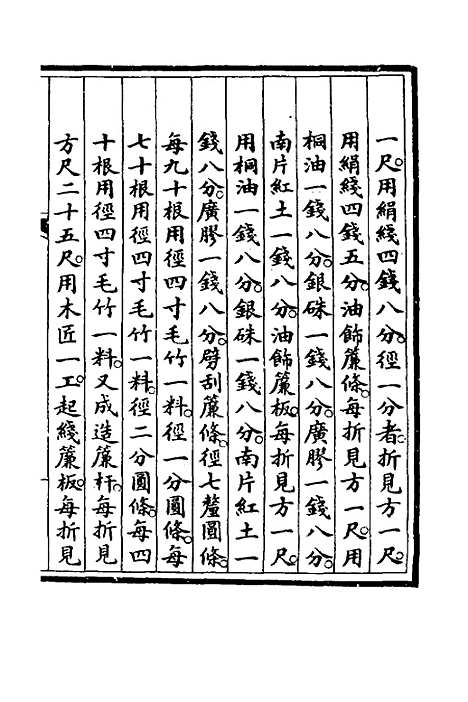 一尺。用絹綫四錢八分。徑一分者折見方一尺。
用絹綫四錢五分。油飾簾條。每折見方一尺。用
桐油一錢八分。銀硃一錢八分。廣膠一錢八分。
南片紅土一錢八分。油飾簾板。每折見方一尺。
用桐油一錢八分。銀硃一錢八分。南片紅土一
錢八分。廣膠一錢八分。劈刮簾條。徑七釐圓條。
每九十根用徑四寸毛竹一料。徑一分圓條。每
七十根用徑四寸毛竹一料。徑二分圓條。每四
十根用徑四寸毛竹一料。又成造簾杆。每折見
方尺二十五尺。用木匠一工。起綫簾板。每折見